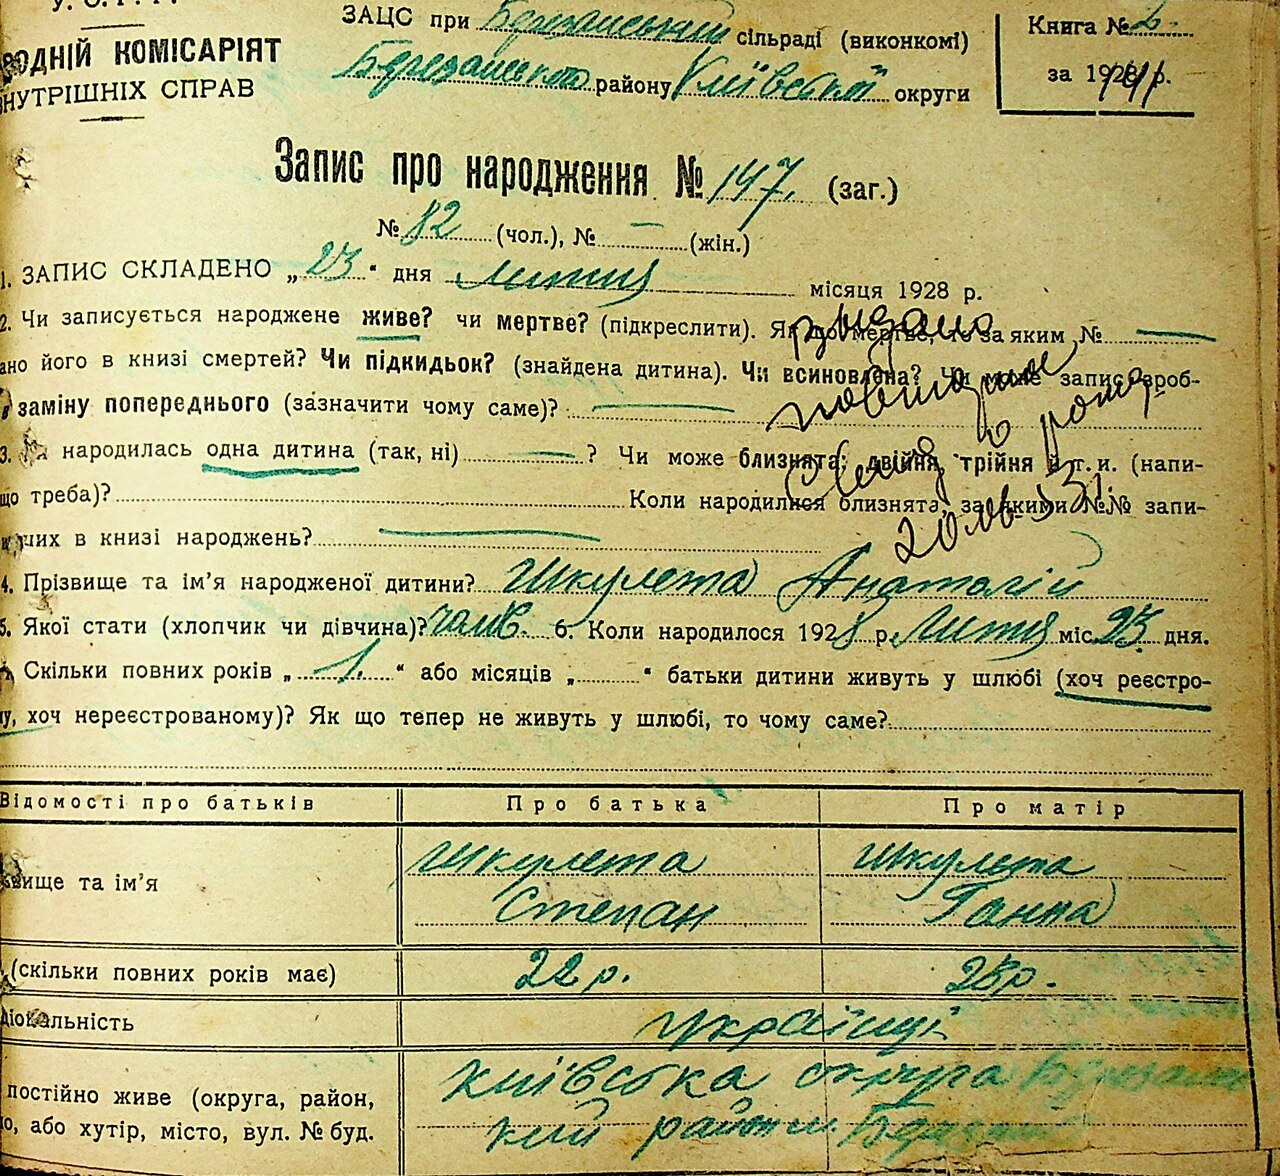 У. С. Р. Р.
РОДНІЙ КОМІСАРІЯТ
ВНУТРІШНІХ СПРАВ
ЗАЦС при Березанський сільраді (виконкомі)
Березанського району Київської округи
Книга № 2.
за 1928 р.
Запис про народження № 147. (заг.)
№ 82 (чол.), № — (жін.)
1. ЗАПИС СКЛАДЕНО „23“ дня липня місяця 1928 р.
2. Чи записується народжене живе? чи мертве? (підкреслити). Як що мертве, то за яким №
ано його в книзі смертей? Чи підкидьок? (знайдена дитина). Чи всиновлена? Чи може запис зроб-
заміну попереднього (зазначити чому саме)?
видано
повторне
20
3. народилась одна дитина (так, ні) ? Чи може близнята: двійня, трійня й т. и. (напи-
що треба)? Коли народилися близнята, за якими №№ запи-
них в книзі народжень?
4. Прізвище та ім’я народженої дитини? Шкулета Анатолій
5. Якої стати (хлопчик чи дівчина)? чолов. 6. Коли народилося 1928 р. Липня міс. 23 дня.
Скільки повних років „1.“ або місяців „ “ батьки дитини живуть у шлюбі (хоч реєстро-
у, хоч нереєстрованому)? Як що тепер не живуть у шлюбі, то чому саме?
Відомості про батьків Про батька Про матір
вище та ім’я Шкулета Степан Шкулета Ганна
(скільки повних років має) 22 р. 23 р.
ціональність Українці
постійно живе (округа, район, Київська округа Березанс
о, або хутір, місто, вул. № буд. кий район м. Березань